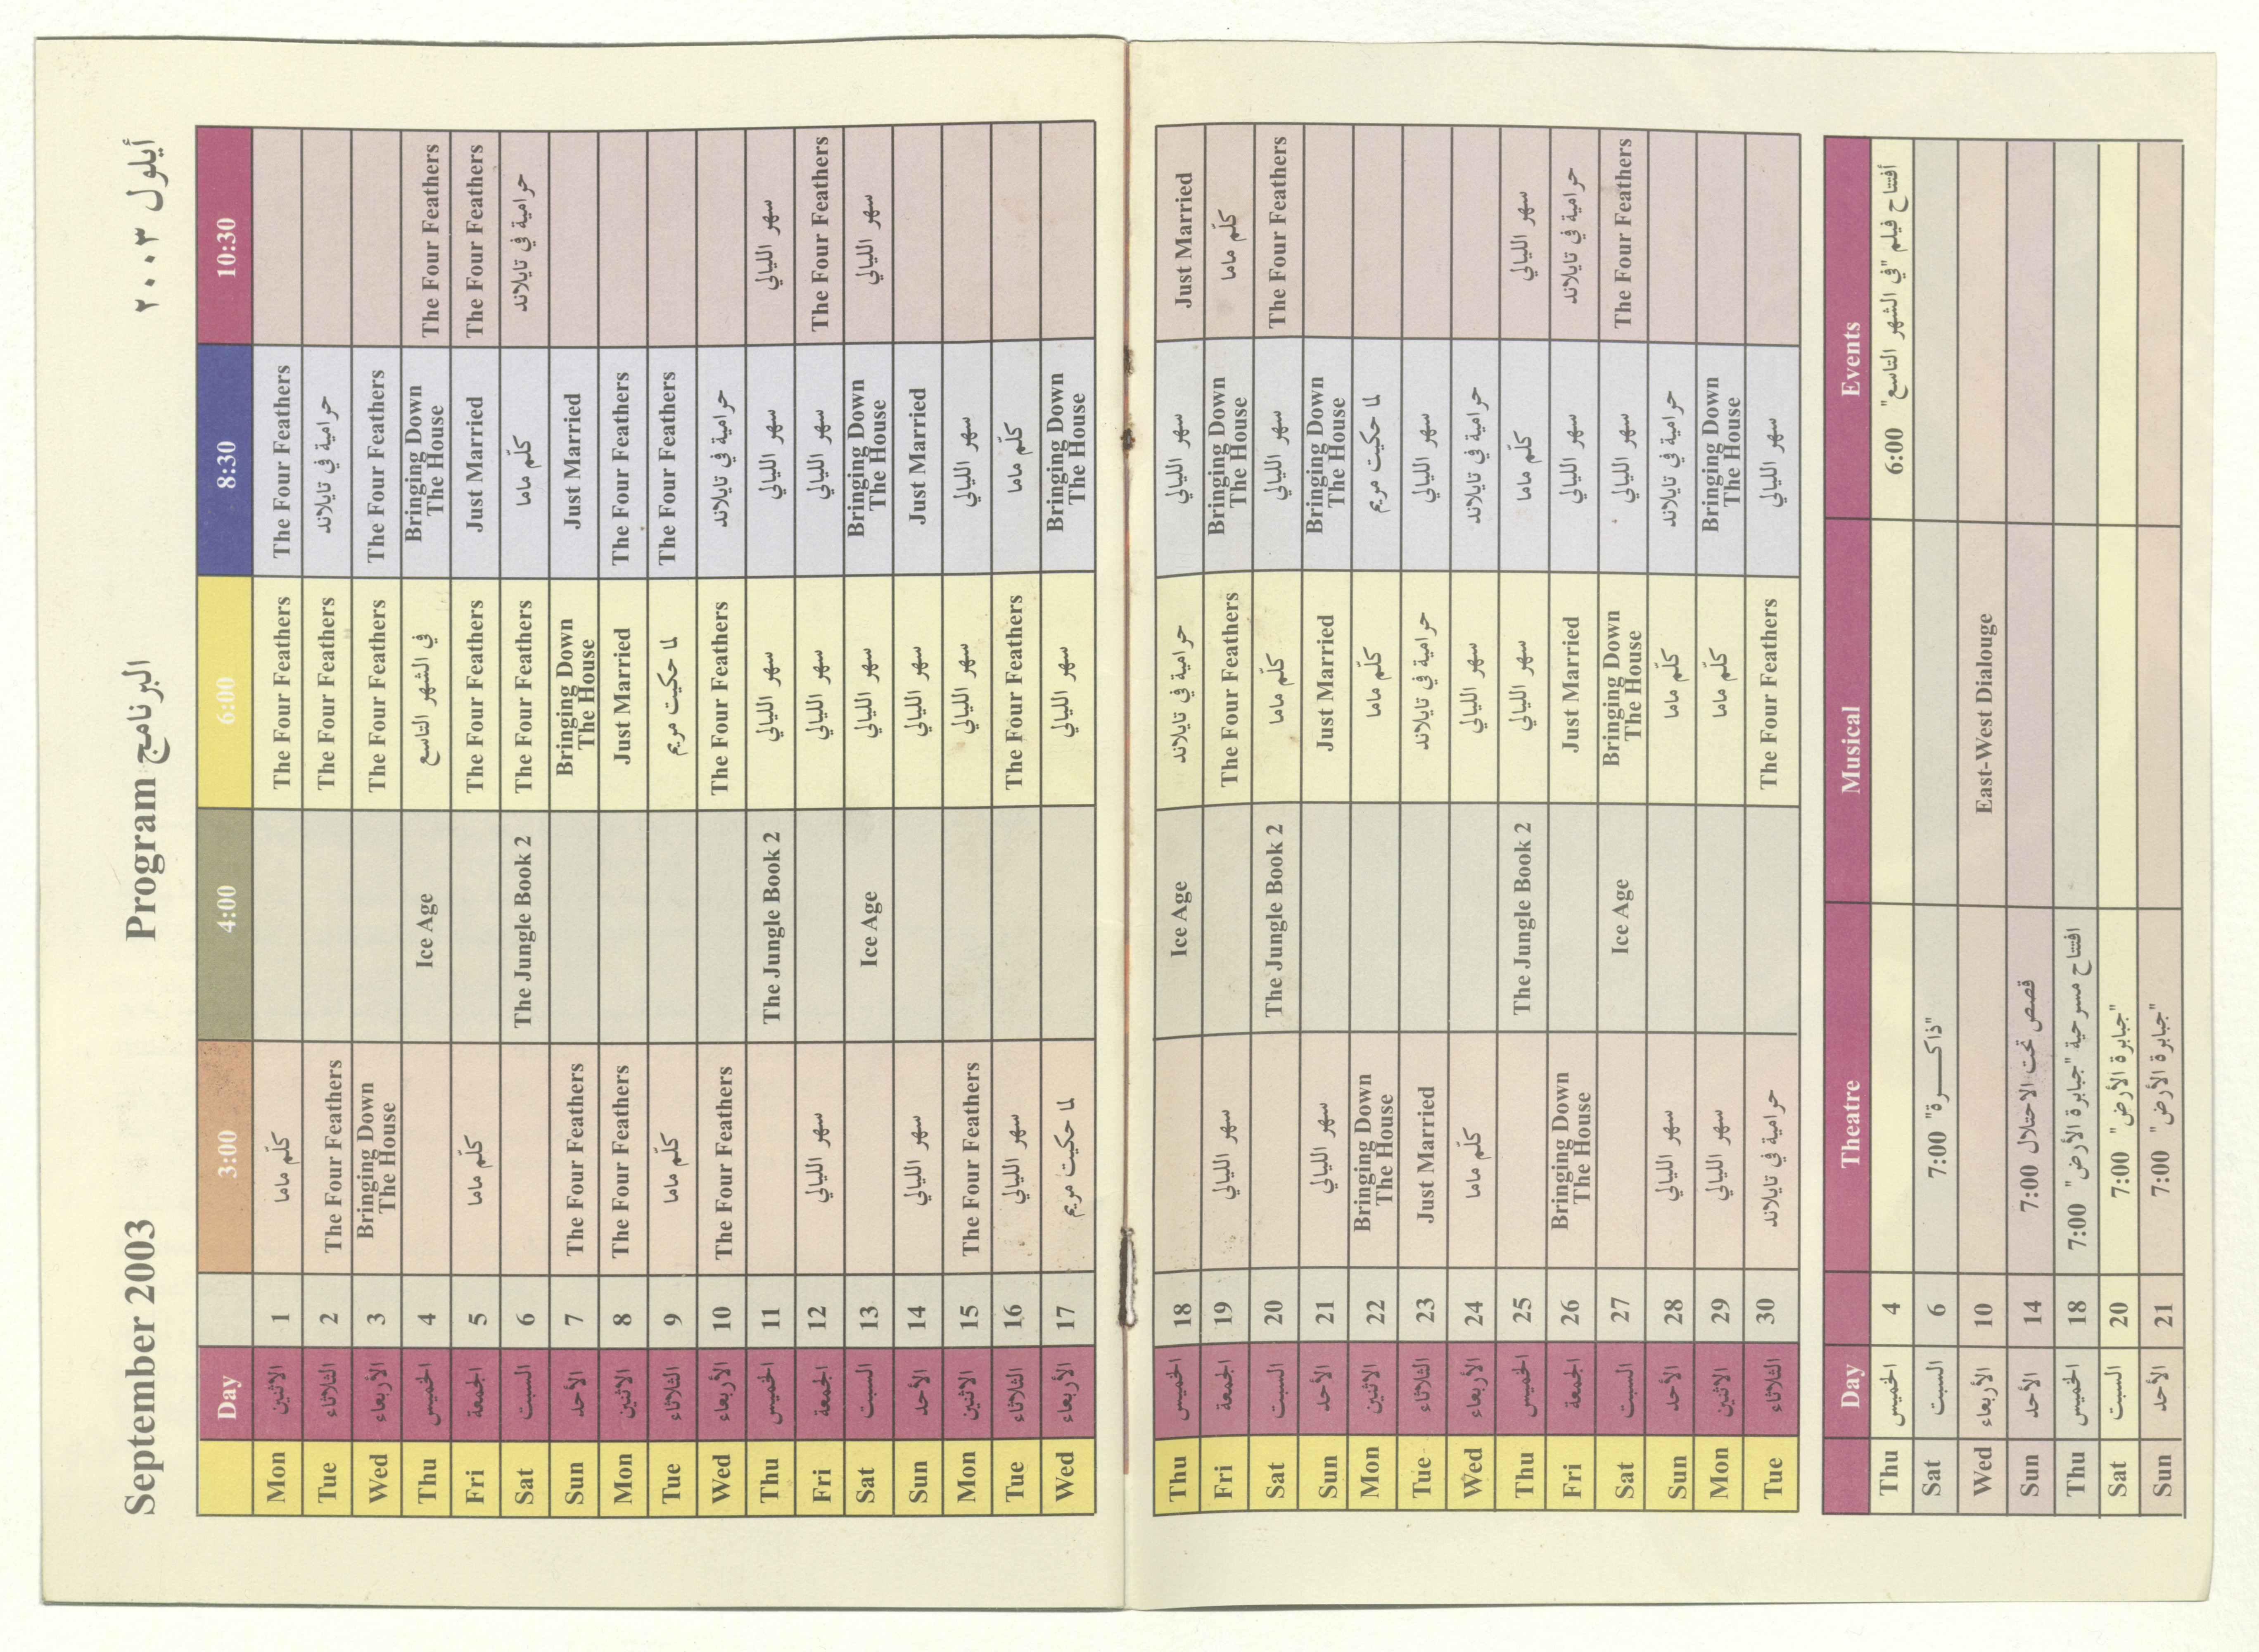 September 2003 Program البرنامج أيلول ٢٠٠٣
Day 3:00 4:00 6:00 8:30 10:30
Mon الاثنين 1 كلّم ماما The Four Feathers The Four Feathers
Tue الثلاثاء 2 The Four Feathers The Four Feathers حرامية في تايلاند
Wed الأربعاء 3 Bringing Down The House The Four Feathers The Four Feathers
Thu الخميس 4 Ice Age في الشهر التاسع Bringing Down The House The Four Feathers
Fri الجمعة 5 كلّم ماما The Four Feathers Just Married The Four Feathers
Sat السبت 6 The Jungle Book 2 The Four Feathers كلّم ماما حرامية في تايلاند
Sun الأحد 7 The Four Feathers Bringing Down The House Just Married
Mon الاثنين 8 The Four Feathers Just Married The Four Feathers
Tue الثلاثاء 9 كلّم ماما لما حكيت مريم The Four Feathers
Wed الأربعاء 10 The Four Feathers The Four Feathers حرامية في تايلاند
Thu الخميس 11 The Jungle Book 2 سهر الليالي سهر الليالي سهر الليالي
Fri الجمعة 12 سهر الليالي سهر الليالي سهر الليالي The Four Feathers
Sat السبت 13 Ice Age سهر الليالي Bringing Down The House سهر الليالي
Sun الأحد 14 سهر الليالي سهر الليالي Just Married
Mon الاثنين 15 The Four Feathers سهر الليالي سهر الليالي
Tue الثلاثاء 16 سهر الليالي The Four Feathers كلّم ماما
Wed الأربعاء 17 لما حكيت مريم سهر الليالي Bringing Down The House
Thu الخميس 18 Ice Age حرامية في تايلاند سهر الليالي Just Married
Fri الجمعة 19 سهر الليالي The Four Feathers Bringing Down The House كلّم ماما
Sat السبت 20 The Jungle Book 2 كلّم ماما سهر الليالي The Four Feathers
Sun الأحد 21 سهر الليالي Just Married Bringing Down The House
Mon الاثنين 22 Bringing Down The House كلّم ماما لما حكيت مريم
Tue الثلاثاء 23 Just Married حرامية في تايلاند سهر الليالي
Wed الأربعاء 24 كلّم ماما سهر الليالي حرامية في تايلاند
Thu الخميس 25 The Jungle Book 2 سهر الليالي كلّم ماما سهر الليالي
Fri الجمعة 26 Bringing Down The House Just Married سهر الليالي حرامية في تايلاند
Sat السبت 27 Ice Age Bringing Down The House سهر الليالي The Four Feathers
Sun الأحد 28 سهر الليالي كلّم ماما حرامية في تايلاند
Mon الاثنين 29 سهر الليالي كلّم ماما Bringing Down The House
Tue الثلاثاء 30 حرامية في تايلاند The Four Feathers سهر الليالي
Day Theatre Musical Events
Thu الخميس 4 أفتتاح فيلم "في الشهر التاسع" 6:00
Sat السبت 6 "ذاكـــــرة" 7:00
Wed الأربعاء 10 East-West Dialouge
Sun الأحد 14 قصص تحت الاحتلال 7:00
Thu الخميس 18 افتتاح مسرحية "جبابرة الأرض" 7:00
Sat السبت 20 "جبابرة الأرض" 7:00
Sun الأحد 21 "جبابرة الأرض" 7:00